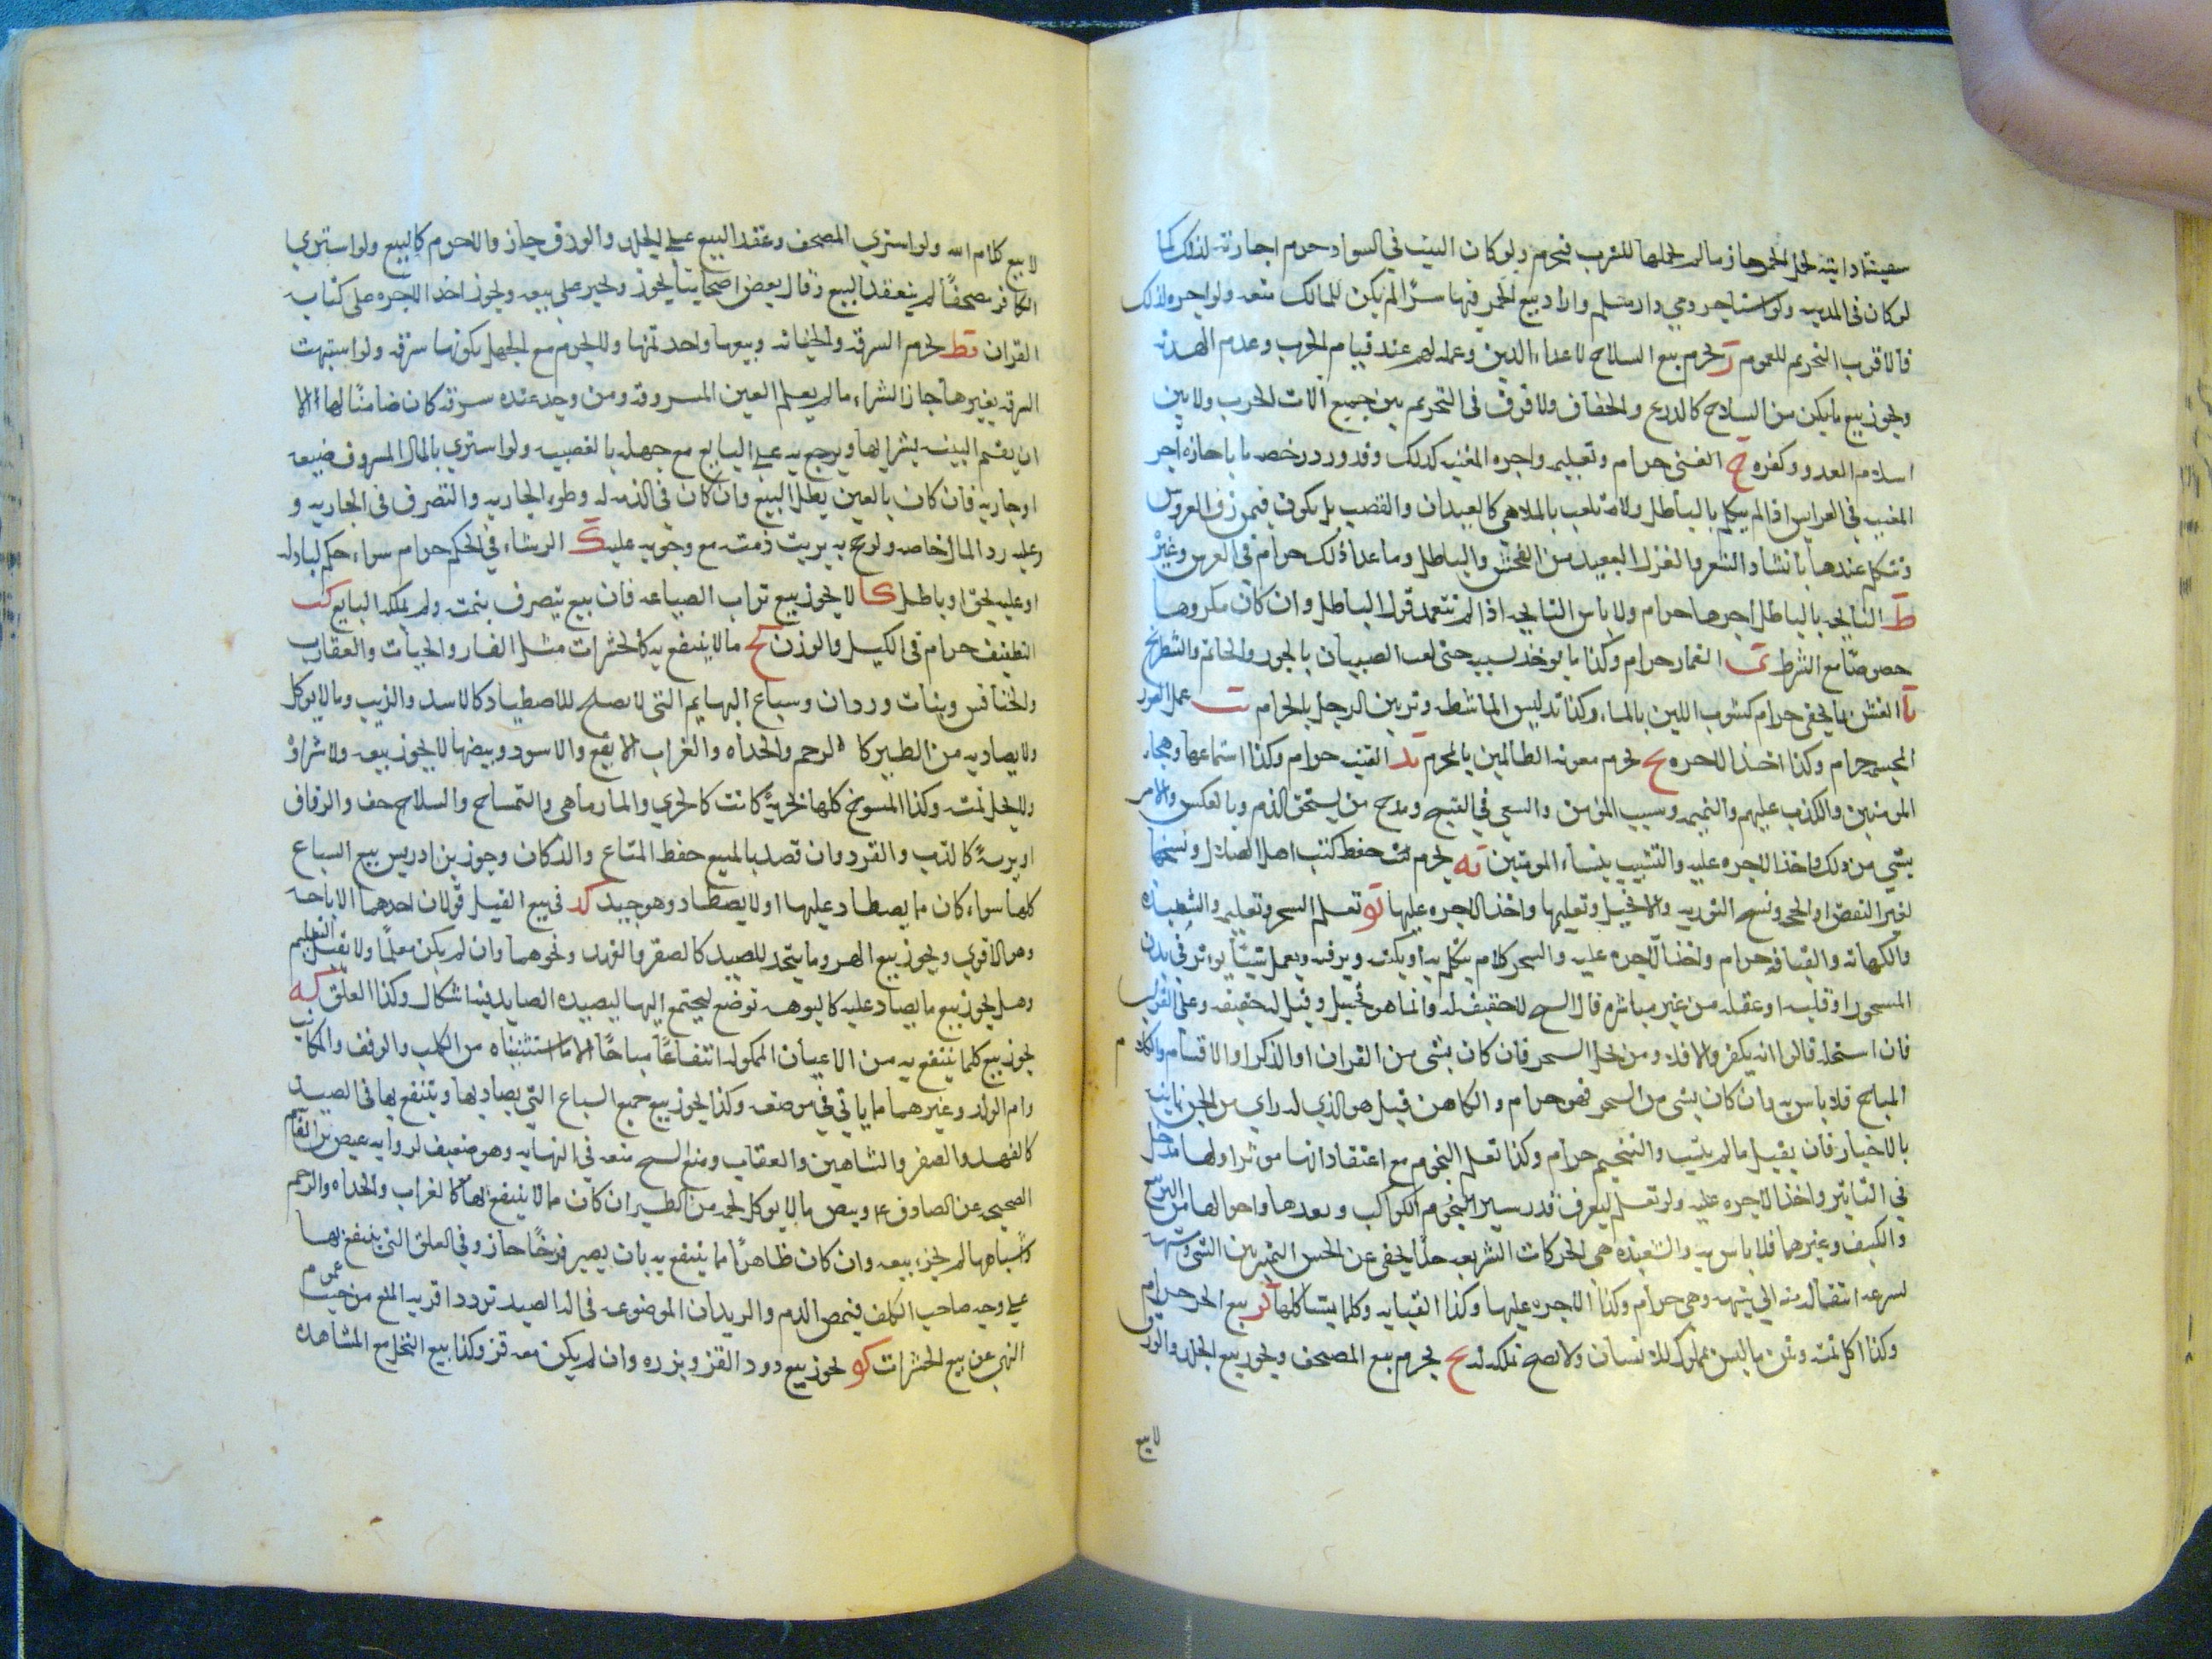 سفينة او دابته لحمل الخمر جاز ما لم يحملها للشرب فيحرم ولو كان البيت في السواد حرم اجارته لذلك كما
لو كان في المدينه ولو استاجر ذمي دار مسلم واراد بيع الخمر فيها سرًا لم يكن للمالك منعه ولو اجره لذلك
فالاقرب التحريم للعموم ز يحرم بيع السلاح لاعداء الدين وعمله لهم عند قيام الحرب وعدم الهدنه
ويجوز بيع ما يكن من السلاح كالدرع والخفاف ولا فرق في التحريم بين جميع الات الحرب ولا بين
اسلام العدو وكفره ح الغنى حرام وتعليمه واجره المغنيه كذلك وقد ورد رخصه باباحه اجر
المغنيه في العرايس اذا لم يتكلم بالباطل ولا تلعب بالملاهي كالعيدان والقصب بل يكون فيمن زف العروس
وتتكلم عندها بانشاد الشعر والغزل البعيد من الفحش والباطل وما عدا ذلك حرام في العرس وغيره
ط النايحه بالباطل اجرها حرام ولا باس النايحه اذا لم تتعمد قول الباطل وان كان مكروها
خصوصًا مع الشرط ى القمار حرام وكذا ما يوخذ بسببه حتى لعب الصبيان بالجوز والخاتم والشطرنج
يا الغش بما يخفى حرام كشوب اللبن بالماء وكذا تدليس الماشطه وتزيين الرجل بالحرام يب عمل الصور
المجسمه حرام وكذا اخذ الاجره يج يحرم معونه الظالمين بالمحرم يد الغيبه حرام وكذا استماعها وهجاء
المومنين والكذب عليهم والنميمه وسبب المومن والسعي في القبيح ومدح من يستحق الذم وبالعكس والامر
بشي من ذلك واخذ الاجره عليه والتشبيب بنساء المومنين يه يحرم حفظ كتب اهل الضلال ونسخها
لغير النقض او الحجه ونسخ التوريه والانجيل وتعليمها واخذ الاجره عليها يو تعلم السحر وتعليمه والشعبذه
والكهانه والقيافه حرام واخذ الاجره عليه والسحر كلام يتكلم به او يكتبه ويرقيه ويعمل شيئًا يوثر في بدن
المسحور او قلبه او عقله من غير مباشره قال الشيخ لا حقيقه له وانما هو تخييل وقيل له حقيقه وعلى القولين
فان استحله قالوا انه يكفر والا فلا ومن يحل السحر فان كان بشي من القران او الذكر او الاقسام والكلام
المباح فلا باس به وان كان بشي من السحر فهو حرام والكاهن قيل هو الذي له راي من الجن ياتيه
بالاخبار فان يقبل ما لم يتب والتنجيم حرام وكذا تعلم النجوم مع اعتقاد انها موثره او لها مدخل
في التاثير واخذ الاجره عليه ولو تعلم ليعرف قدر سير النجوم الكواكب وبعدها واحوالها من التربيع
والكيف وغيرهما فلا باس به والشعبذه هي الحركات السريعه جدًا يخفي عن الحس التميز بين الشي وشبهه
لسرعه انتقاله منه الي شبهه وهي حرام وكذا الاجره عليها وكذا القيافه وكلما يشاكلها يز بيع الحر حرام
وكذا اكل ثمنه وثمن ما ليس بمملوك للانسان ولا يصح تملكه له يح يحرم بيع المصحف ويجوز بيع الجلد والورق
لا بيع
لا بيع كلام الله ولو اشتري المصحف وعقد البيع علي الجلد والورق جاز والا حرم كالبيع ولو اشتري
الكافر مصحفًا لم ينعقد البيع وقال بعض اصحابنا يجوز ويجبر على بيعه ويجوز اخذ الاجره على كتابه
القران يط يحرم السرقه والخيانه وبيعها واخذ ثمنها ولا يحرم مع الجهل بكونها سرقه ولو اشتبهت
السرقه بغيرها جاز الشراء ما لم يعلم العين المسروقه ومن وجد عنده سرقه كان ضامنًا لها الا
ان يقيم البينه بشرائها ويرجع به علي البايع مع جهله بالغصبيه ولو اشتري بالمال المسروق ضيعه
او جاريه فان كان بالعين بطل البيع وان كان في الذمه له وطوء الجاريه والتصرف في الجاريه و
وعليه رد المال خاصه ولو حج به بريت ذمته مع وجوبه عليه ك الرشاء في الحكم حرام سواء حكم لباذله
او عليه بحق او باطل كا لا يجوز بيع تراب الصياغه فان بيع يتصرف بثمنه ولم يملكه البايع كب
التطفيف حرام في الكيل والوزن كج ما لا ينتفع به كالحشرات مثل الفار والحيات والعقارب
والخنافس وبنات وردان وسباع البهايم التي لا تصلح للاصطياد كالاسد والذيب وما لا يوكل
ولا يصاد به من الطير كالرحم والحداه والغراب الابقع والاسود وبيضها لا يجوز بيعه ولا شراؤ
ولا يحل ثمنه وكذا المسوخ كلها بحريةً كانت كالجري والمارماهي والتمساح والسلاحف والرقاق
او بريةً كالذيب والقرد وان قصد بالمبيع حفظ المتاع والدكان وجوز بن ادريس بيع السباع
كلها سواء كان ما يصطاد عليها او لا يصطاد وهو جيد كد في بيع الفيل قولان احدهما الاباحه
وهو الاقوي ويجوز بيع الهر وما يتخذ للصيد كالصقر والفهد ونحوهما وان لم يكن معلمًا ولا يقبل التعليم
وهل يجوز بيع ما يصاد عليه كالبومه توضع ليجتمع اليها ليصيده الصايد فيه اشكال وكذا العلق كه
يجوز بيع كلما ينتفع به من الاعيان المملوكه انتفاعًا مباحًا الا ما استثنيناه من الكلب والوقف والمكاتب
وام الولد وغيرهما ما ياتي في موضعه وكذا يجوز بيع جميع السباع التي يصاد بها وينتفع بها في الصيد
كالفهد والصقر والشاهين والعقاب ومنع الشيخ منعه في النهايه وهو ضعيف لروايه عيص بن القاسم
الصحيحه عن الصادق ع وبيض ما لا يوكل لحمه من الطير ان كان مما لا ينتفع بها كالغراب والحداه والرحم
واشباهها لم يجز بيعه وان كان ظاهرًا مما ينتفع به بان يصير فرخًا جاز وفي العلق التي ينتفع بها
علي وجه صاحب الكلف فيمص الدم والديدان الموضوعه في الصيد تردد اقربه المنع من حيث عموم
النهي عن بيع الحشرات كو يجوز بيع دود القز وبزره وان لم يكن معه قز وكذا بيع النحل مع المشاهده